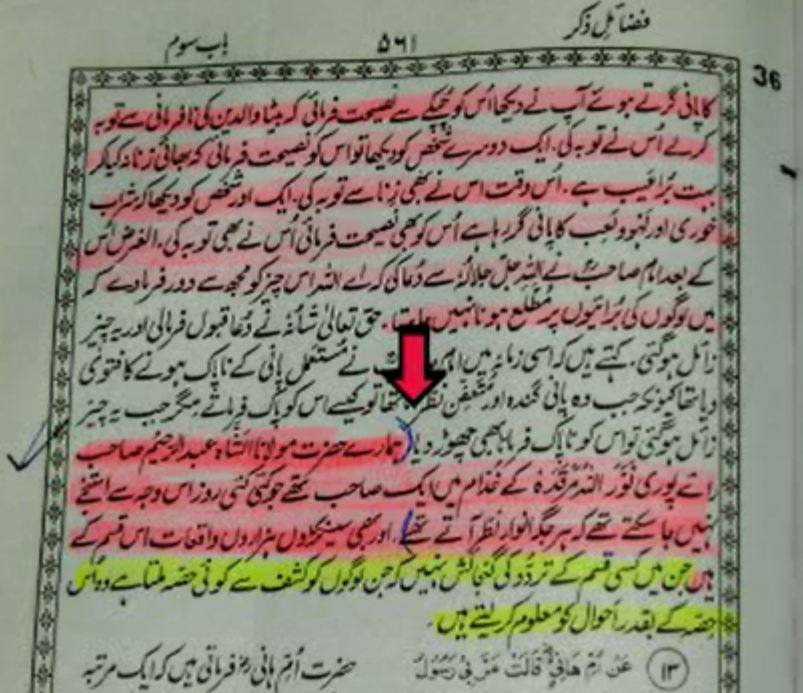 فضائل ذکر
۵۶۱
باب سوم
36
کا پانی گرتے ہوئے آپ نے دیکھا اُس کو چُپکے سے نصیحت فرمائی کہ بیٹا والدین کی نافرمانی سے توبہ
کرلے اُس نے توبہ کی. ایک دوسرے شخص کو دیکھا تو اس کو نصیحت فرمائی کہ بھائی زنا نہ کیا کر
بہت بُرا عیب ہے. اُس وقت اس نے بھی زِنا سے توبہ کی. ایک اور شخص کو دیکھا کہ شراب
خوری اور لہو ولعب کا پانی گر رہا ہے اُس کو بھی نصیحت فرمائی اُس نے بھی توبہ کی. الغرض اُس
کے بعد امام صاحبؒ نے اللہ جلّ جلالُہٗ سے دُعا کی کہ اے اللہ اس چیز کو مجھ سے دور فرمادے کہ
میں لوگوں کی بُرائیوں پر مُطّلع ہونا نہیں چاہتا. حق تعالیٰ شانُہٗ نے دُعا قبول فرمالی اور یہ چیز
زائل ہوگئی. کہتے ہیں کہ اسی زمانہ میں امام نے مُستعمل پانی کے ناپاک ہونے کا فتویٰ
دیا تھا کیونکہ جب وہ پانی گندہ اور متعفّن نظر تھا تو کیسے اس کو پاک فرماتے مگر جب یہ چیز
زائل ہوگئی تو اس کو ناپاک فرمانا بھی چھوڑ دیا) ہمارے حضرت مولانا الشاہ عبدالرحیم صاحب
رائے پوری نوّر اللہ مرقدہٗ کے خُدّام میں ایک صاحب تھے جو کئی کئی روز اس وجہ سے استنجے
نہیں جا سکتے تھے کہ ہر جگہ انوار نظر آتے تھے. اور بھی سینکڑوں ہزاروں واقعات اس قسم کے
ہیں جن میں کسی قسم کے تردّد کی گنجائش نہیں کہ جن لوگوں کو کشف سے کوئی حصّہ ملتا ہے وہ اُس
حصّہ کے بقدر احوال کو معلوم کر لیتے ہیں.
(۱۳) عَنْ اُمِّ هَانِیٍٔ قَالَتْ مَرَّ بِیْ رَسُوْلُ
حضرت اُمّ ہانی رضؓ فرماتی ہیں کہ ایک مرتبہ